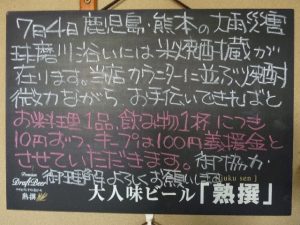 7月4日鹿児島・熊本の大雨災害
球磨川沿いには米焼酎蔵が
在ります。当店カウンターに並ぶ焼酎
微力ながら、お手伝いできればと
お料理1品、飲み物1杯につき
10円おつ、キープは100円義援金と
させていただきます。御協力・
御理解よろしくお願いします。
Premium
Draft Beer
熟撰
大人味ビール「熟撰」
[juku sen]